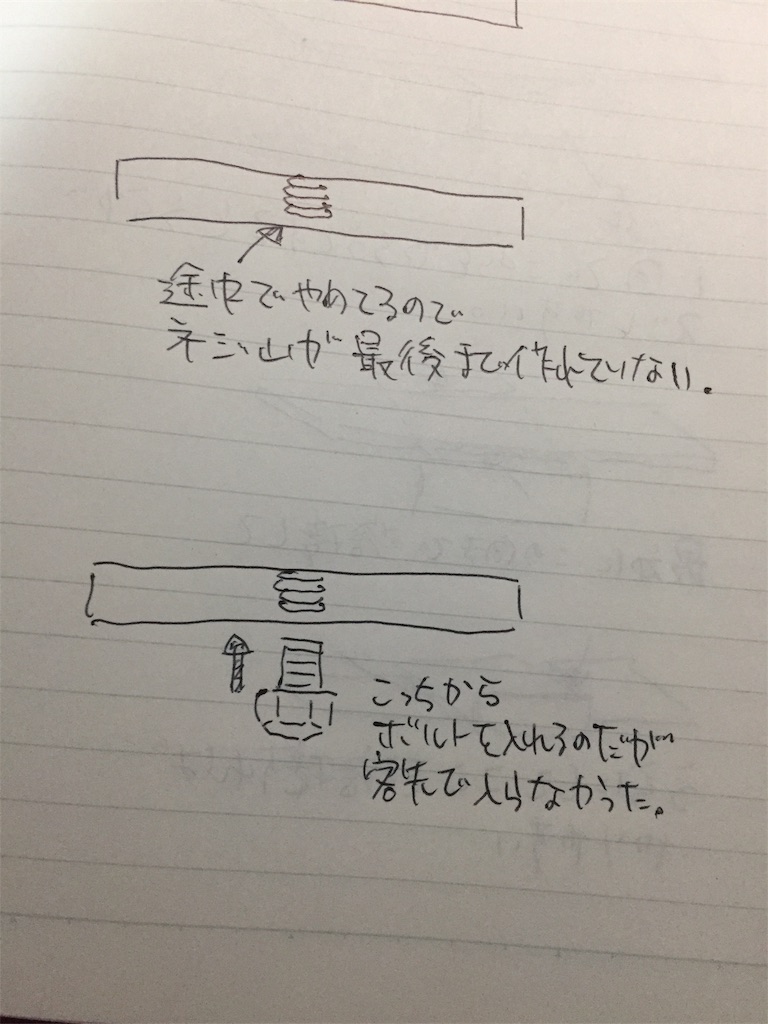 途中でやめてるので
ネジ山が最後まで作れていない。
こっちから
ボルトを入れるのだが
客先で入らなかった。